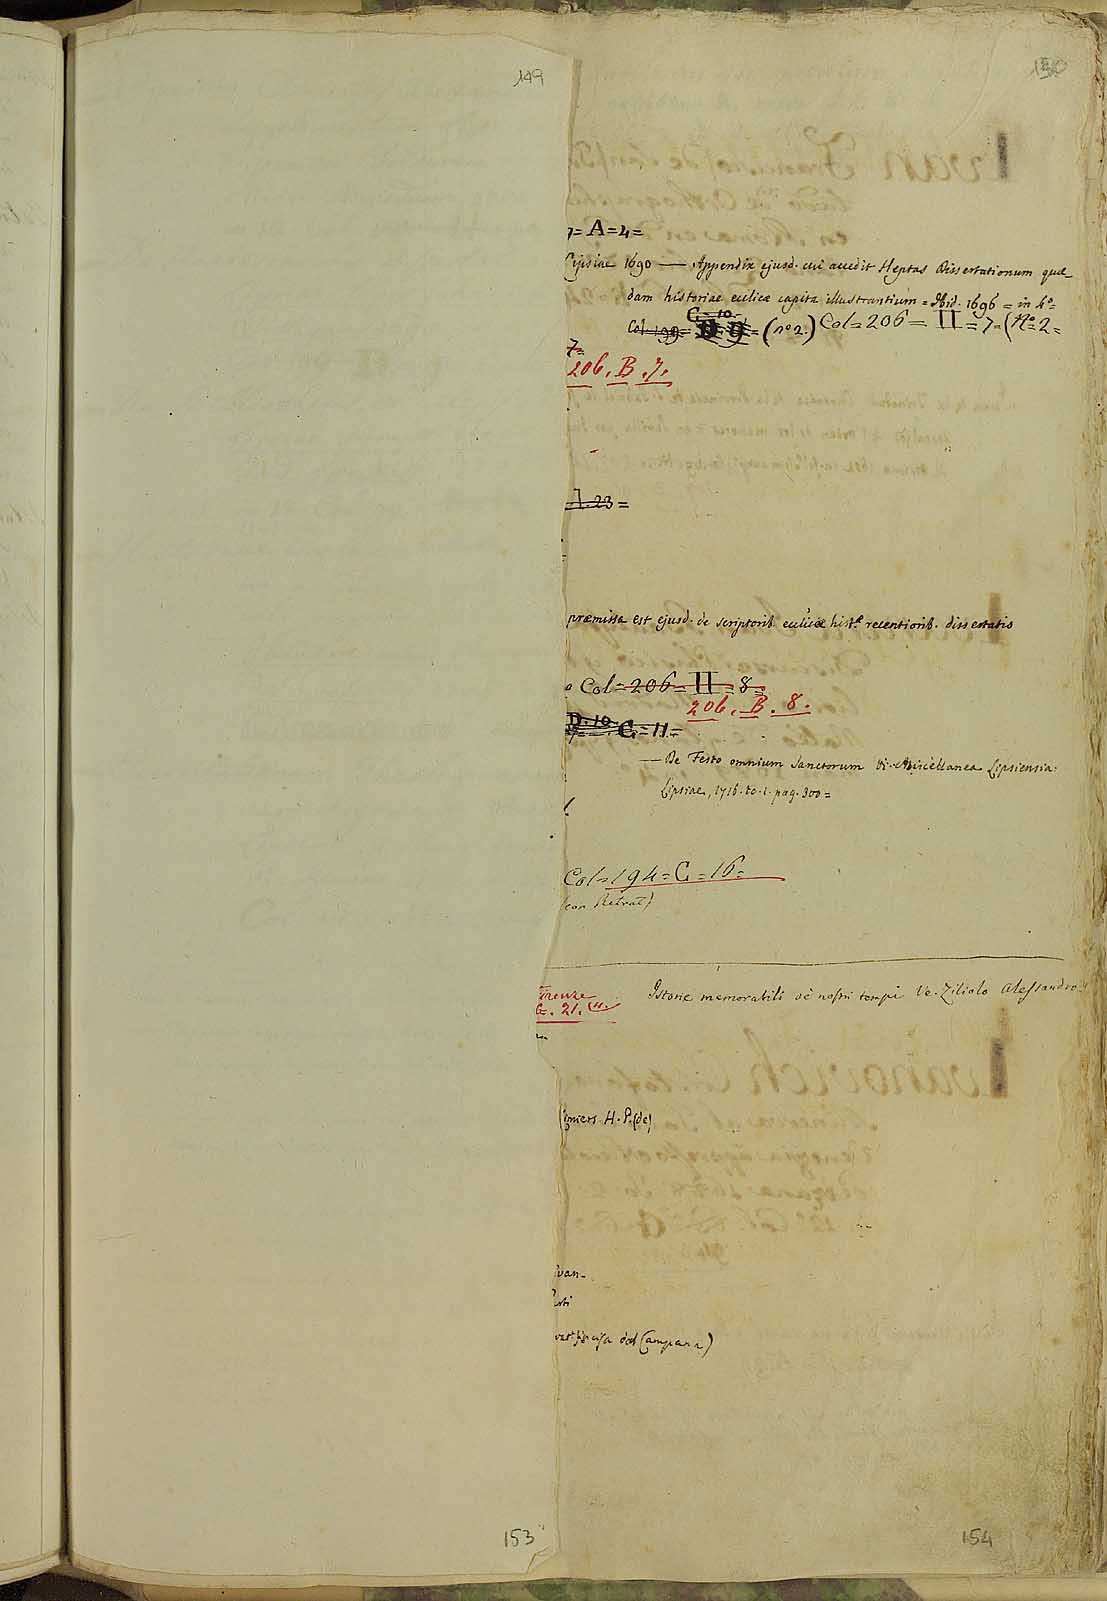 149
150
= A = 4 =
Lipsiae 1690 — Appendix ejusd. cui accedit Heptas Dissertationum quæ-
dam historiae ecclicæ capita illustrantium = Ibid. 1696 = in 4º =
C = 10 =
Col = 199 = D. 9 = (nº 2.) Col = 206 = II = 7 = (Nº = 2 =
7 =
206. B. 7.
1. 23 =
præmissa est ejusd. de scriptorib. ecclicæ histæ recentiorib. dissertatio
Col = 206 = II = 8 =
206. B. 8.
D. 10. C = 11 =
— De Festo omnium Sanctorum Vi. Miscellanea Lipsiensia:
Lipsiae, 1716. to. 1. pag. 300 =
Col = 194 = C = 16 =
(con Retrat)
Firenze
G. 21.
Istorie memorabili de' nostri tempi Ve. Ziliolo Alessandro
Limiers H. P. (de)
del Campana)
153
154